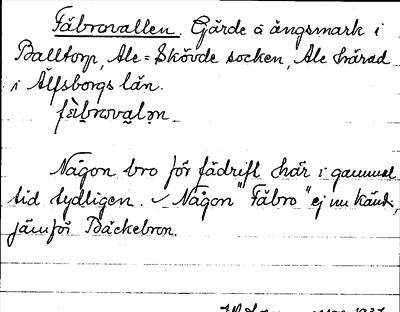 Fäbrovallen. Gärde å ängsmark i
Balltorp, Ale=Skövde socken, Ale härad
i Älfsborgs län.
fä̀brovaḷən
Någon bro för fädrift här i gammal
tid tydligen. Någon "Fäbro" ej nu känd,
jämför Bäckebron.
1937